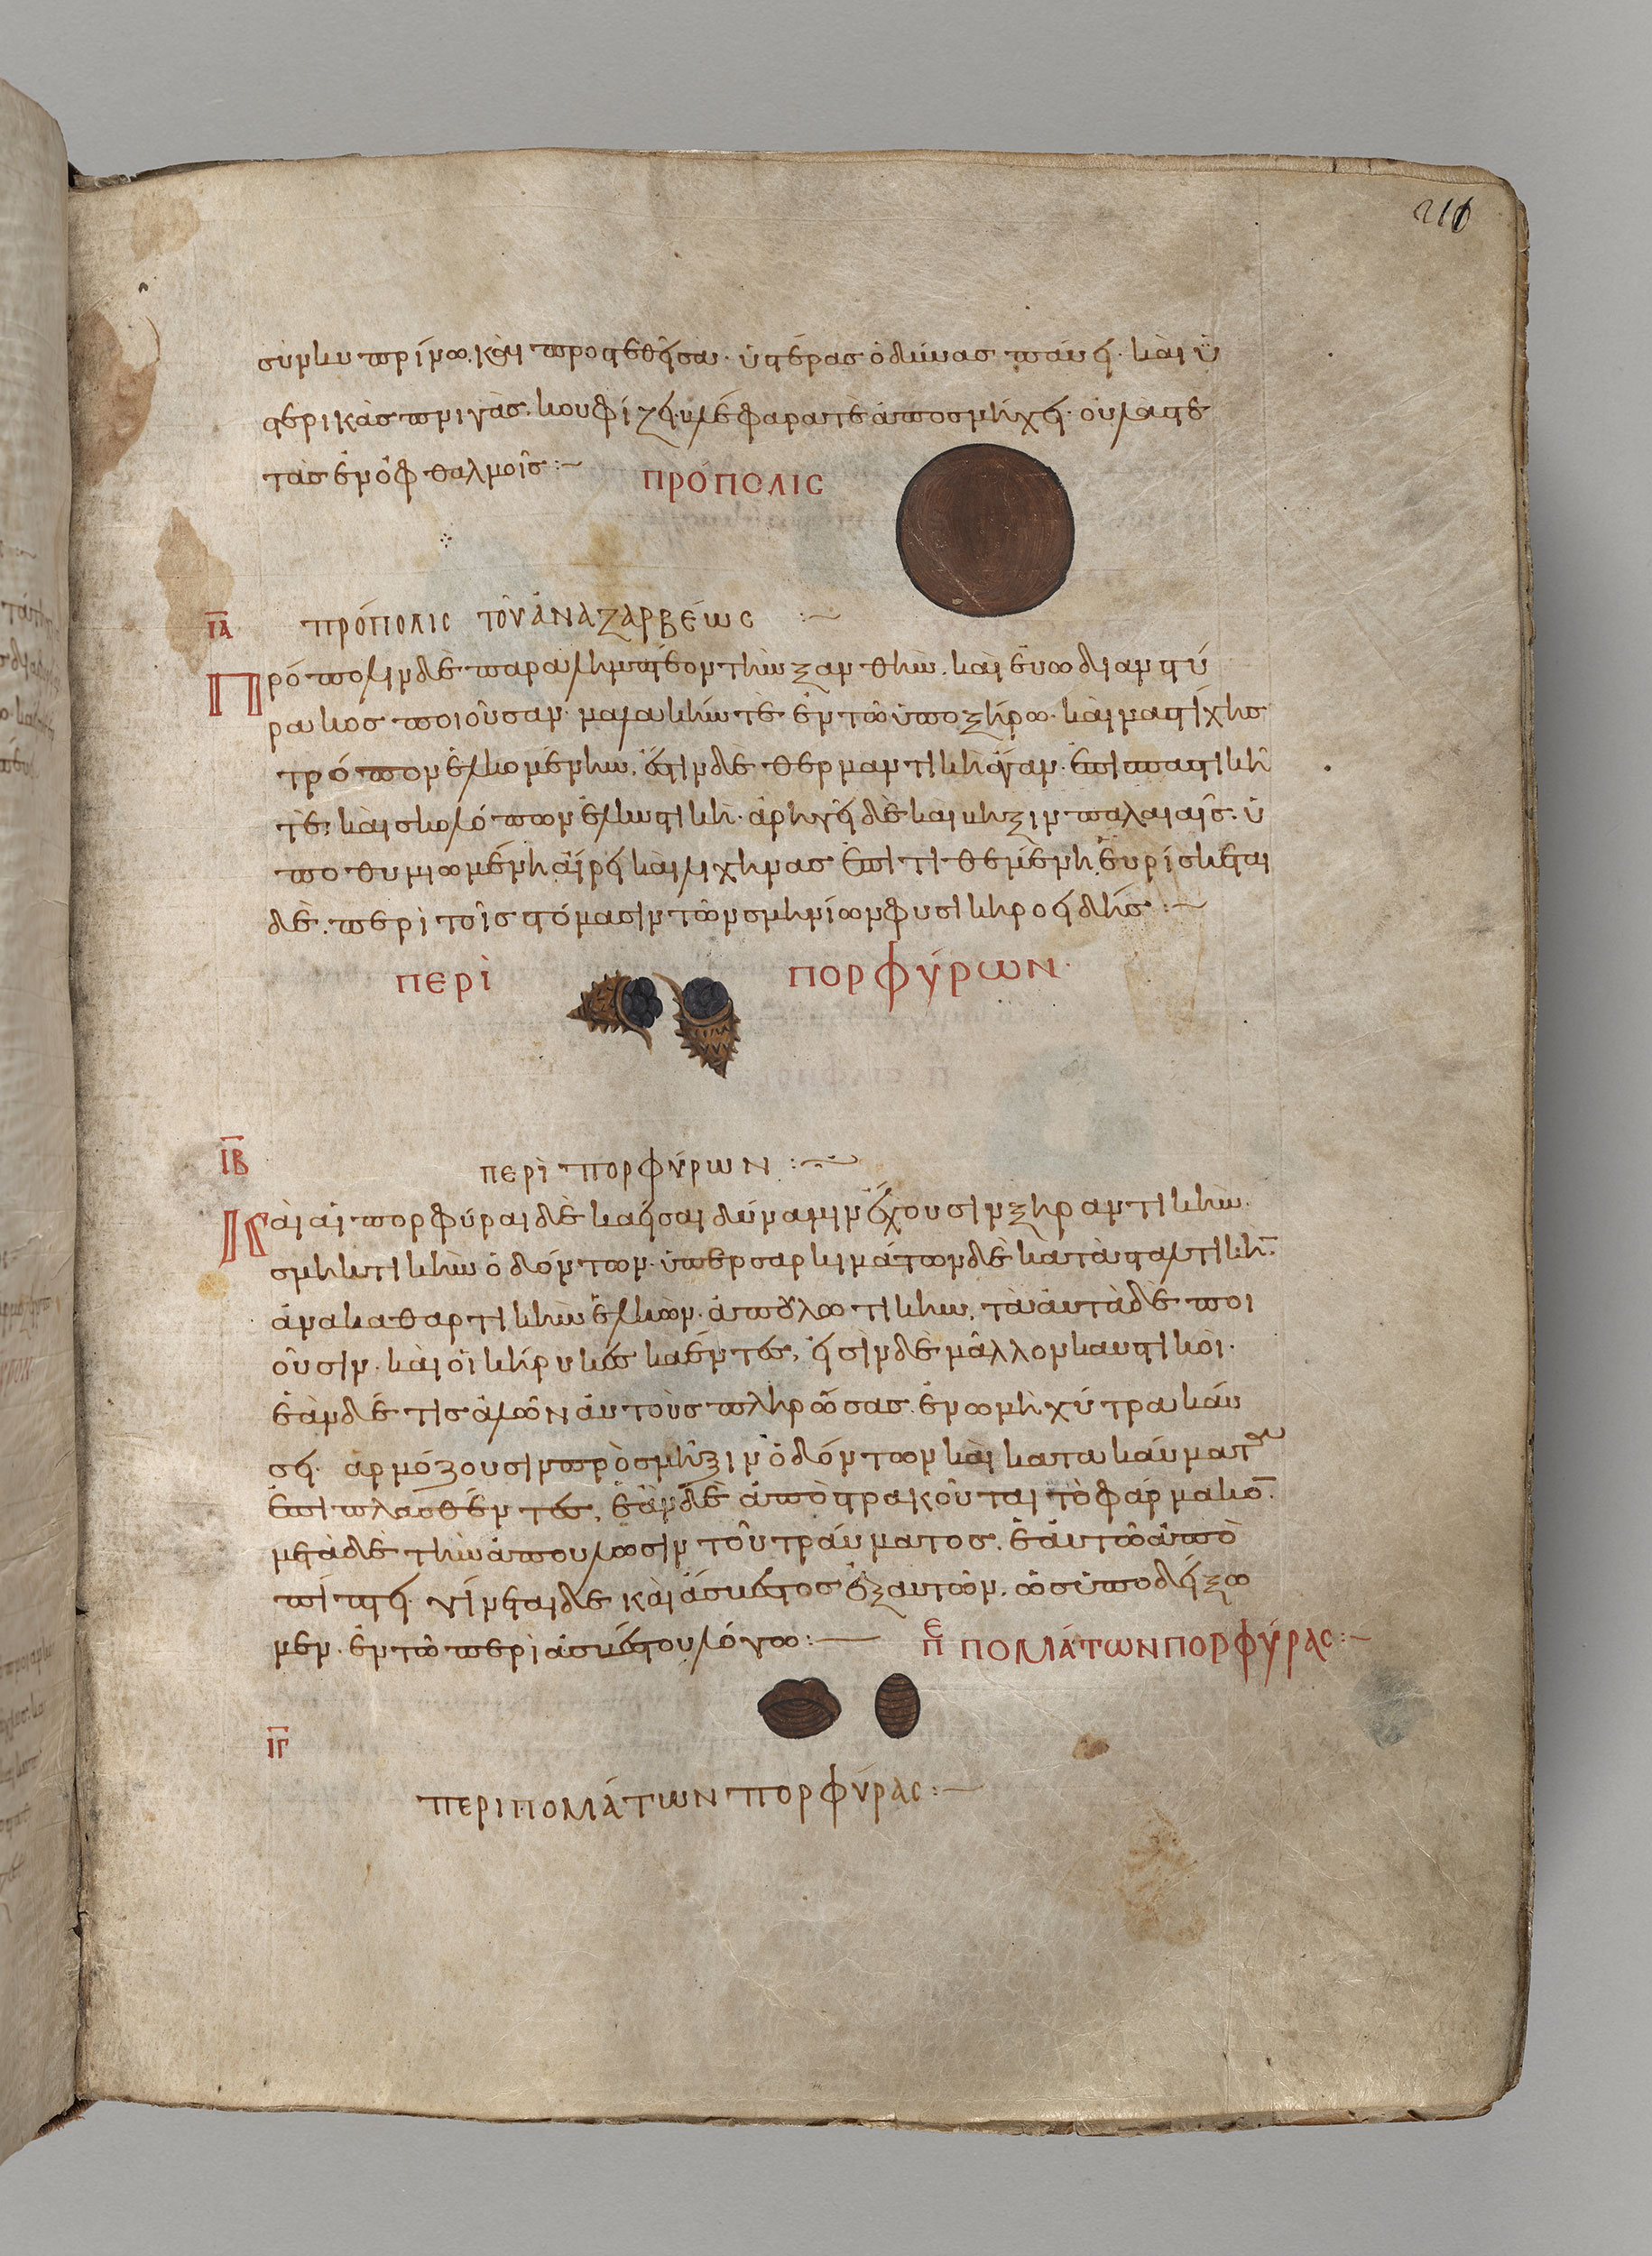 216
σὺν κυπρίνω. καὶ προστεθεῖσα. ὑστέρας ὀδύνας παύει. καὶ ὑ
στερικὰς πνιγὰς. κουφίζει. βλέφαρά τε ἀποσμήχει. οὐλάς τε
τὰς ἐν ὀφθαλμοῖς :~
ΠΡΌΠΟΛΙC
ΙΑ ΠΡΌΠΟΛΙC ΤΟΥ ἈΝΑΖΑΡΒΈΩC :~
Πρόπολιν δὲ παραλημπτέον τὴν ξανθὴν. καὶ εὐώδιαν στύ
ρακος ποιοῦσαν. μαλακήν τε ἐν τῶ ὑποξήρω. καὶ μαστίχης
τρόπον ἑλκομένην. ἔστιν δὲ θερμαντικὴ ἄγαν. ἐπισπαστικὴ
τὲ. καὶ σκολόπων ἑλκυστικὴ. ἀρήγει δὲ καὶ κηξιν παλαιαῖς. ὑ
ποθυμιωμένη αἴρει καὶ λιχήνας ἐπιτιθεμένη. εὑρίσκεται
δὲ. περὶ τοῖς στόμασιν τῶν σμηνίων φύσι κηροειδής :~
ΠΕΡῚ ΠΟΡΦΎΡΩΝ.
ΙΒ
ΠΕΡῚ ΠΟΡΦΎΡΩΝ :~
Καὶ αἱ πορφύραι δὲ καεῖσαι δύναμιν ἔχουσιν ξηραντικὴν.
σμηκτικὴν ὀδόντων. ὑπερσαρκιμάτων δὲ κατασταλτικὴ̅.
ἀνακαθαρτικὴν ἑλκῶν. ἀπουλωτικην. τὰ αὐτὰ δὲ ποι
οῦσιν. καὶ οἱ κήρυκες καέντες. εἰσὶν δὲ μᾶλλον καυστικοὶ.
ἐὰν δέ τις ἁλῶν αὐτοὺς πληρώσας. ἐν ωμὴ χύτρα καύ
σει. ἁρμόζουσιν πρὸς σμῆξιν ὀδόντων καὶ κατακαύματ
ἐπιπλασθέντες. ἐὰν δὲ ἀποστρακοῦται τὸ φάρμακο̅.
μετὰ δὲ τὴν ἀπούλωσιν τοῦ τραύματος. ἑαυτῶ ἀπο
πίπτει. γίνεται δὲ καὶ ἄσβεστος ἐξ αὐτῶν. ὡς ὑποδείξω
μεν. ἐν τῶ περὶ ἀσβέστου λόγω :—
Πε ΠΟΜΆΤΩΝ ΠΟΡΦΎΡΑC :~
ΙΓ
ΠΕΡΙ ΠΟΜΆΤΩΝ ΠΟΡΦΎΡΑC :~